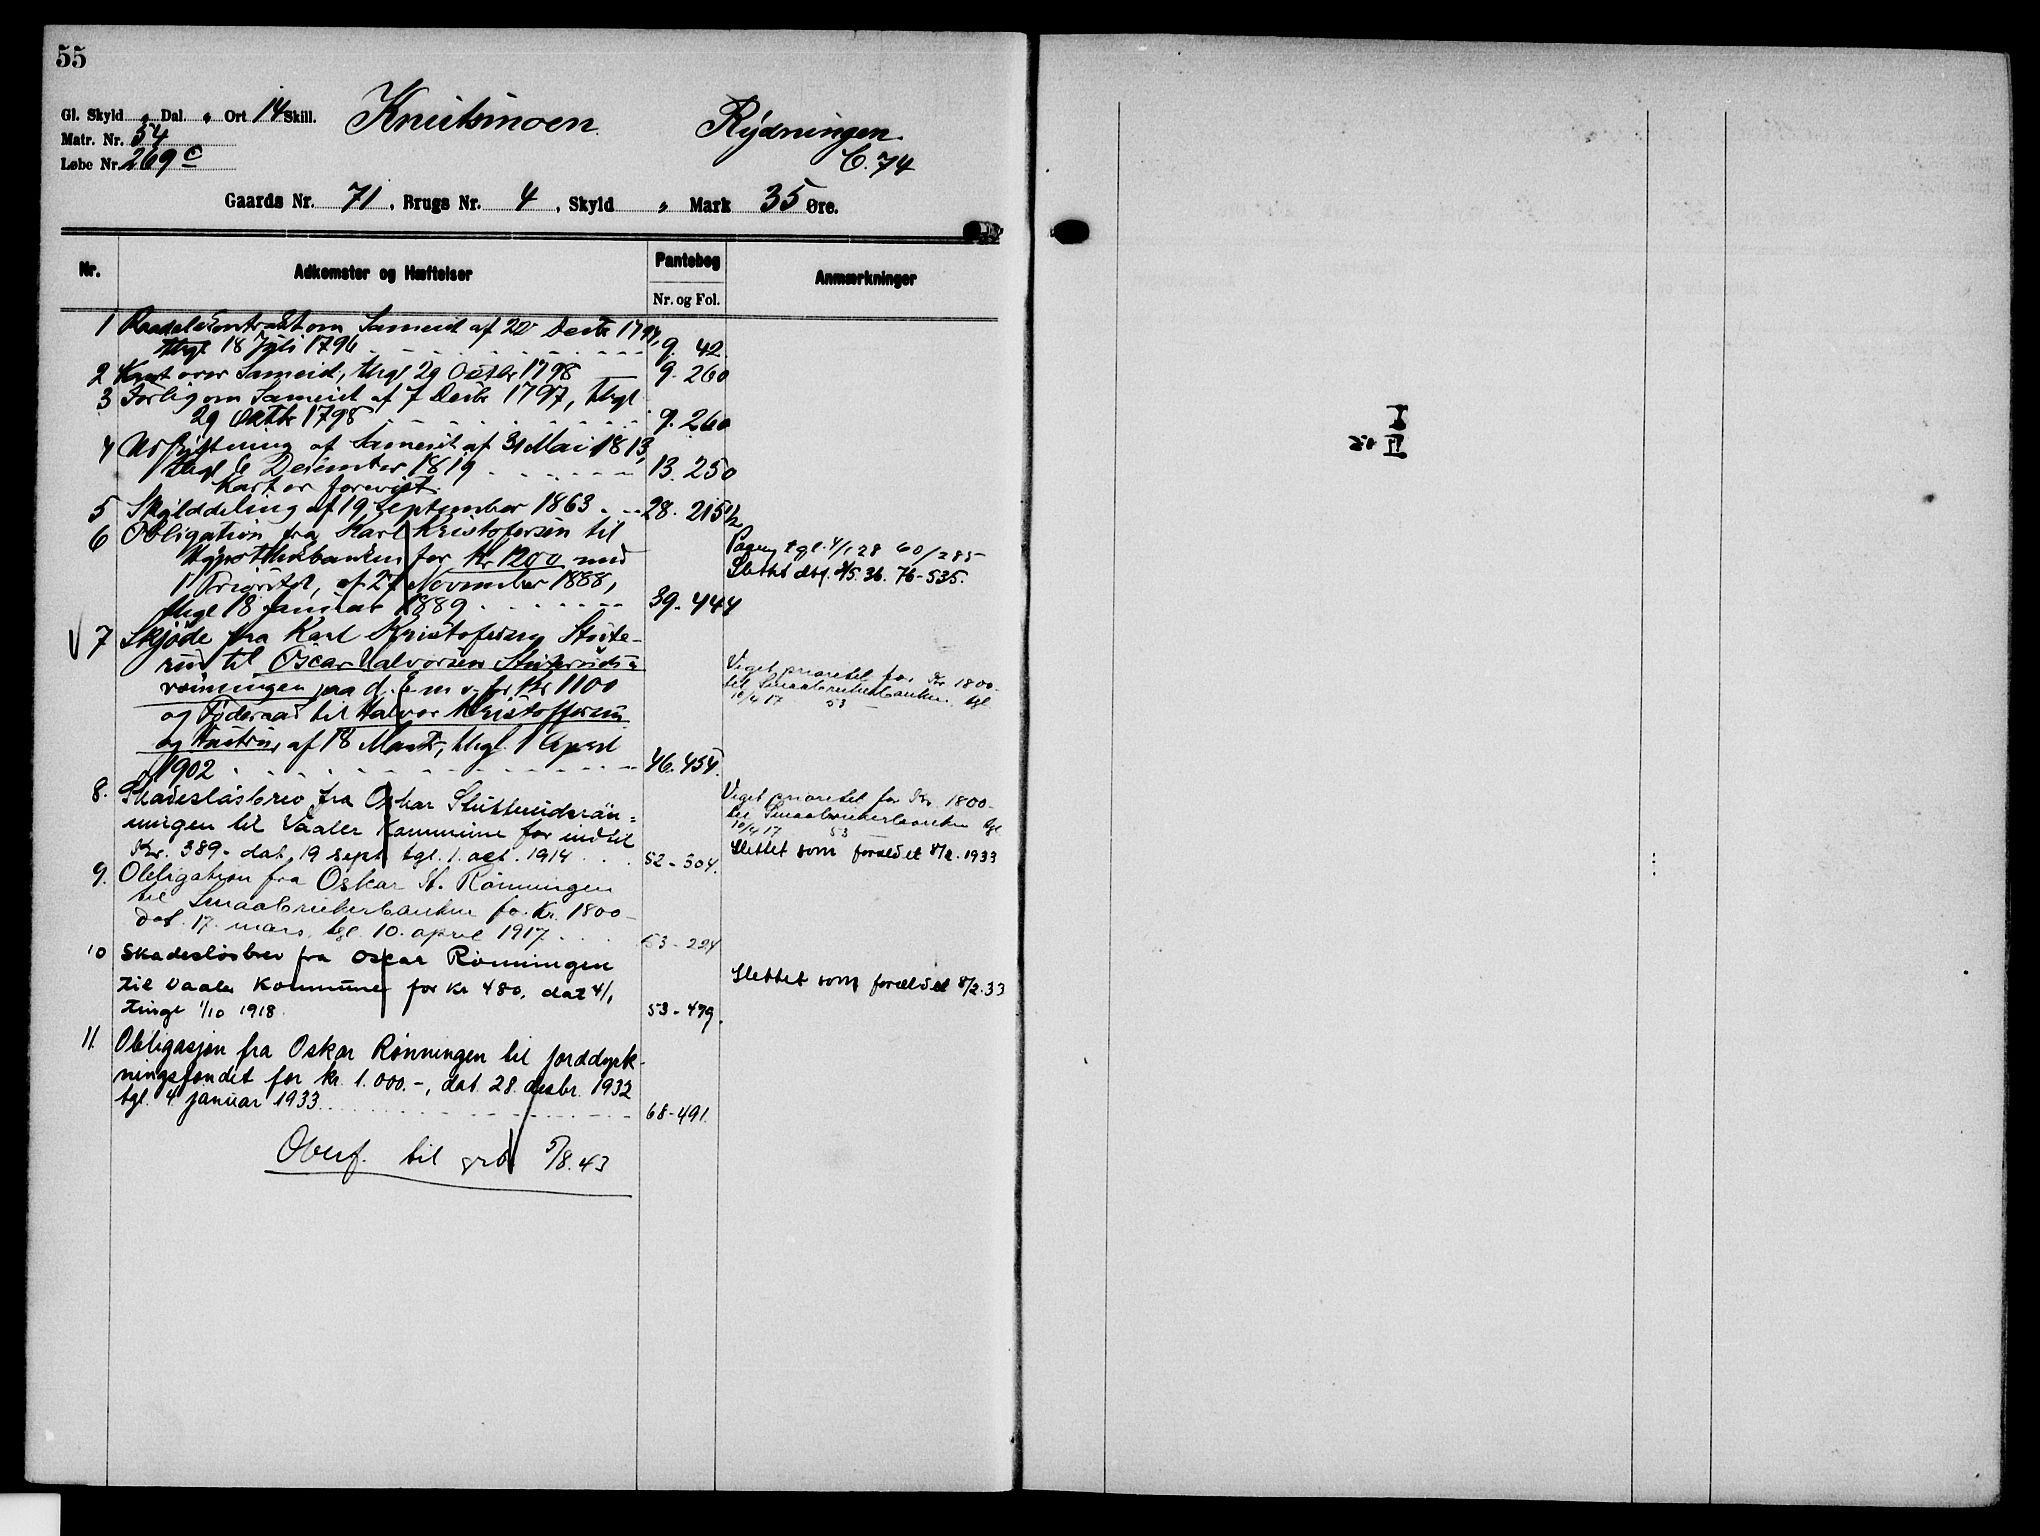 55
Gl. Skyld „ Dal. „ Ort 14 Skill. Knutsmoen. Rydningen.
Matr. Nr. 54
Løbe Nr. 269 c C. 74
Gaards Nr. 71, Brugs Nr. 4, Skyld „ Mark 35 Øre.
Nr. Adkomster og Hæftelser Pantebog Anmærkninger
Nr. og Fol.
1 om Sameiet af 20 Decbr 1794,
thgl 18 Juli 1796 9. 42.
2 Kart over Sameiet, thgl 29 Octbr 1798 9. 260
3 Forlig om Sameiet af 7 Decbr 1797, thgl
29 Octbr 1798 9. 260
4 Udskiftning af Sameiet af 31 Mai 1813,
thgl 6 December 1819 13. 250
Kart er forevist.
5 Skylddeling af 19 September 1863 28. 215 1/2
6 Obligation fra Karl Kristofersen til
Hypothekbanken for Kr 1200 med
1 Prioritet, af 27 November 1888,
thgl 18 Januar 1889 39. 444
tgl. 4/1 28 60/285
Slettet 36. 76-535.
7 Skjøde fra Karl Kristofersen Stute-
rud til Oscar Halvorsen Stuteruds-
rønningen paa d. E. m v. for Kr 1100
og Føderaad til Halvor Kristoffersen
og Hustru, af 18 Marts, thgl. 1 April
1902 46. 454.
Veget prioritet for Kr 1800-
til Smaabrukerbanken tgl
10/4 17 53
8. Skadesløsbrev fra Oskar Stutterudsrøn=
ningen til Vaaler Kommune for indtil
Kr. 389- dat. 19 sept tgl. 1. oct. 1914 52-304.
Veget prioritet for Kr. 1800-
til Smaabrukerbanken tgl
10/4 17 53
Slettet som foreldet 8/2. 1933
9. Obligation fra Oskar St. Rønningen
til Smaabrukerbanken for Kr. 1800-
Dat. 17. mars, tgl. 10. april 1917. 53-224
10 Skadesløsbrev fra Oscar Rønningen
til Vaaler Kommune for kr 480, dat 4/1
tingl 1/10 1918. 53-479.
Slettet som foreldet 8/2.33
11. Obligasjon fra Oskar Rønningen til Jorddyrk-
ningsfondet for kr. 1.000.-, dat. 28. desbr. 1932
tgl. 4 januar 1933 68-491.
Overf. til grb. 5/8.43